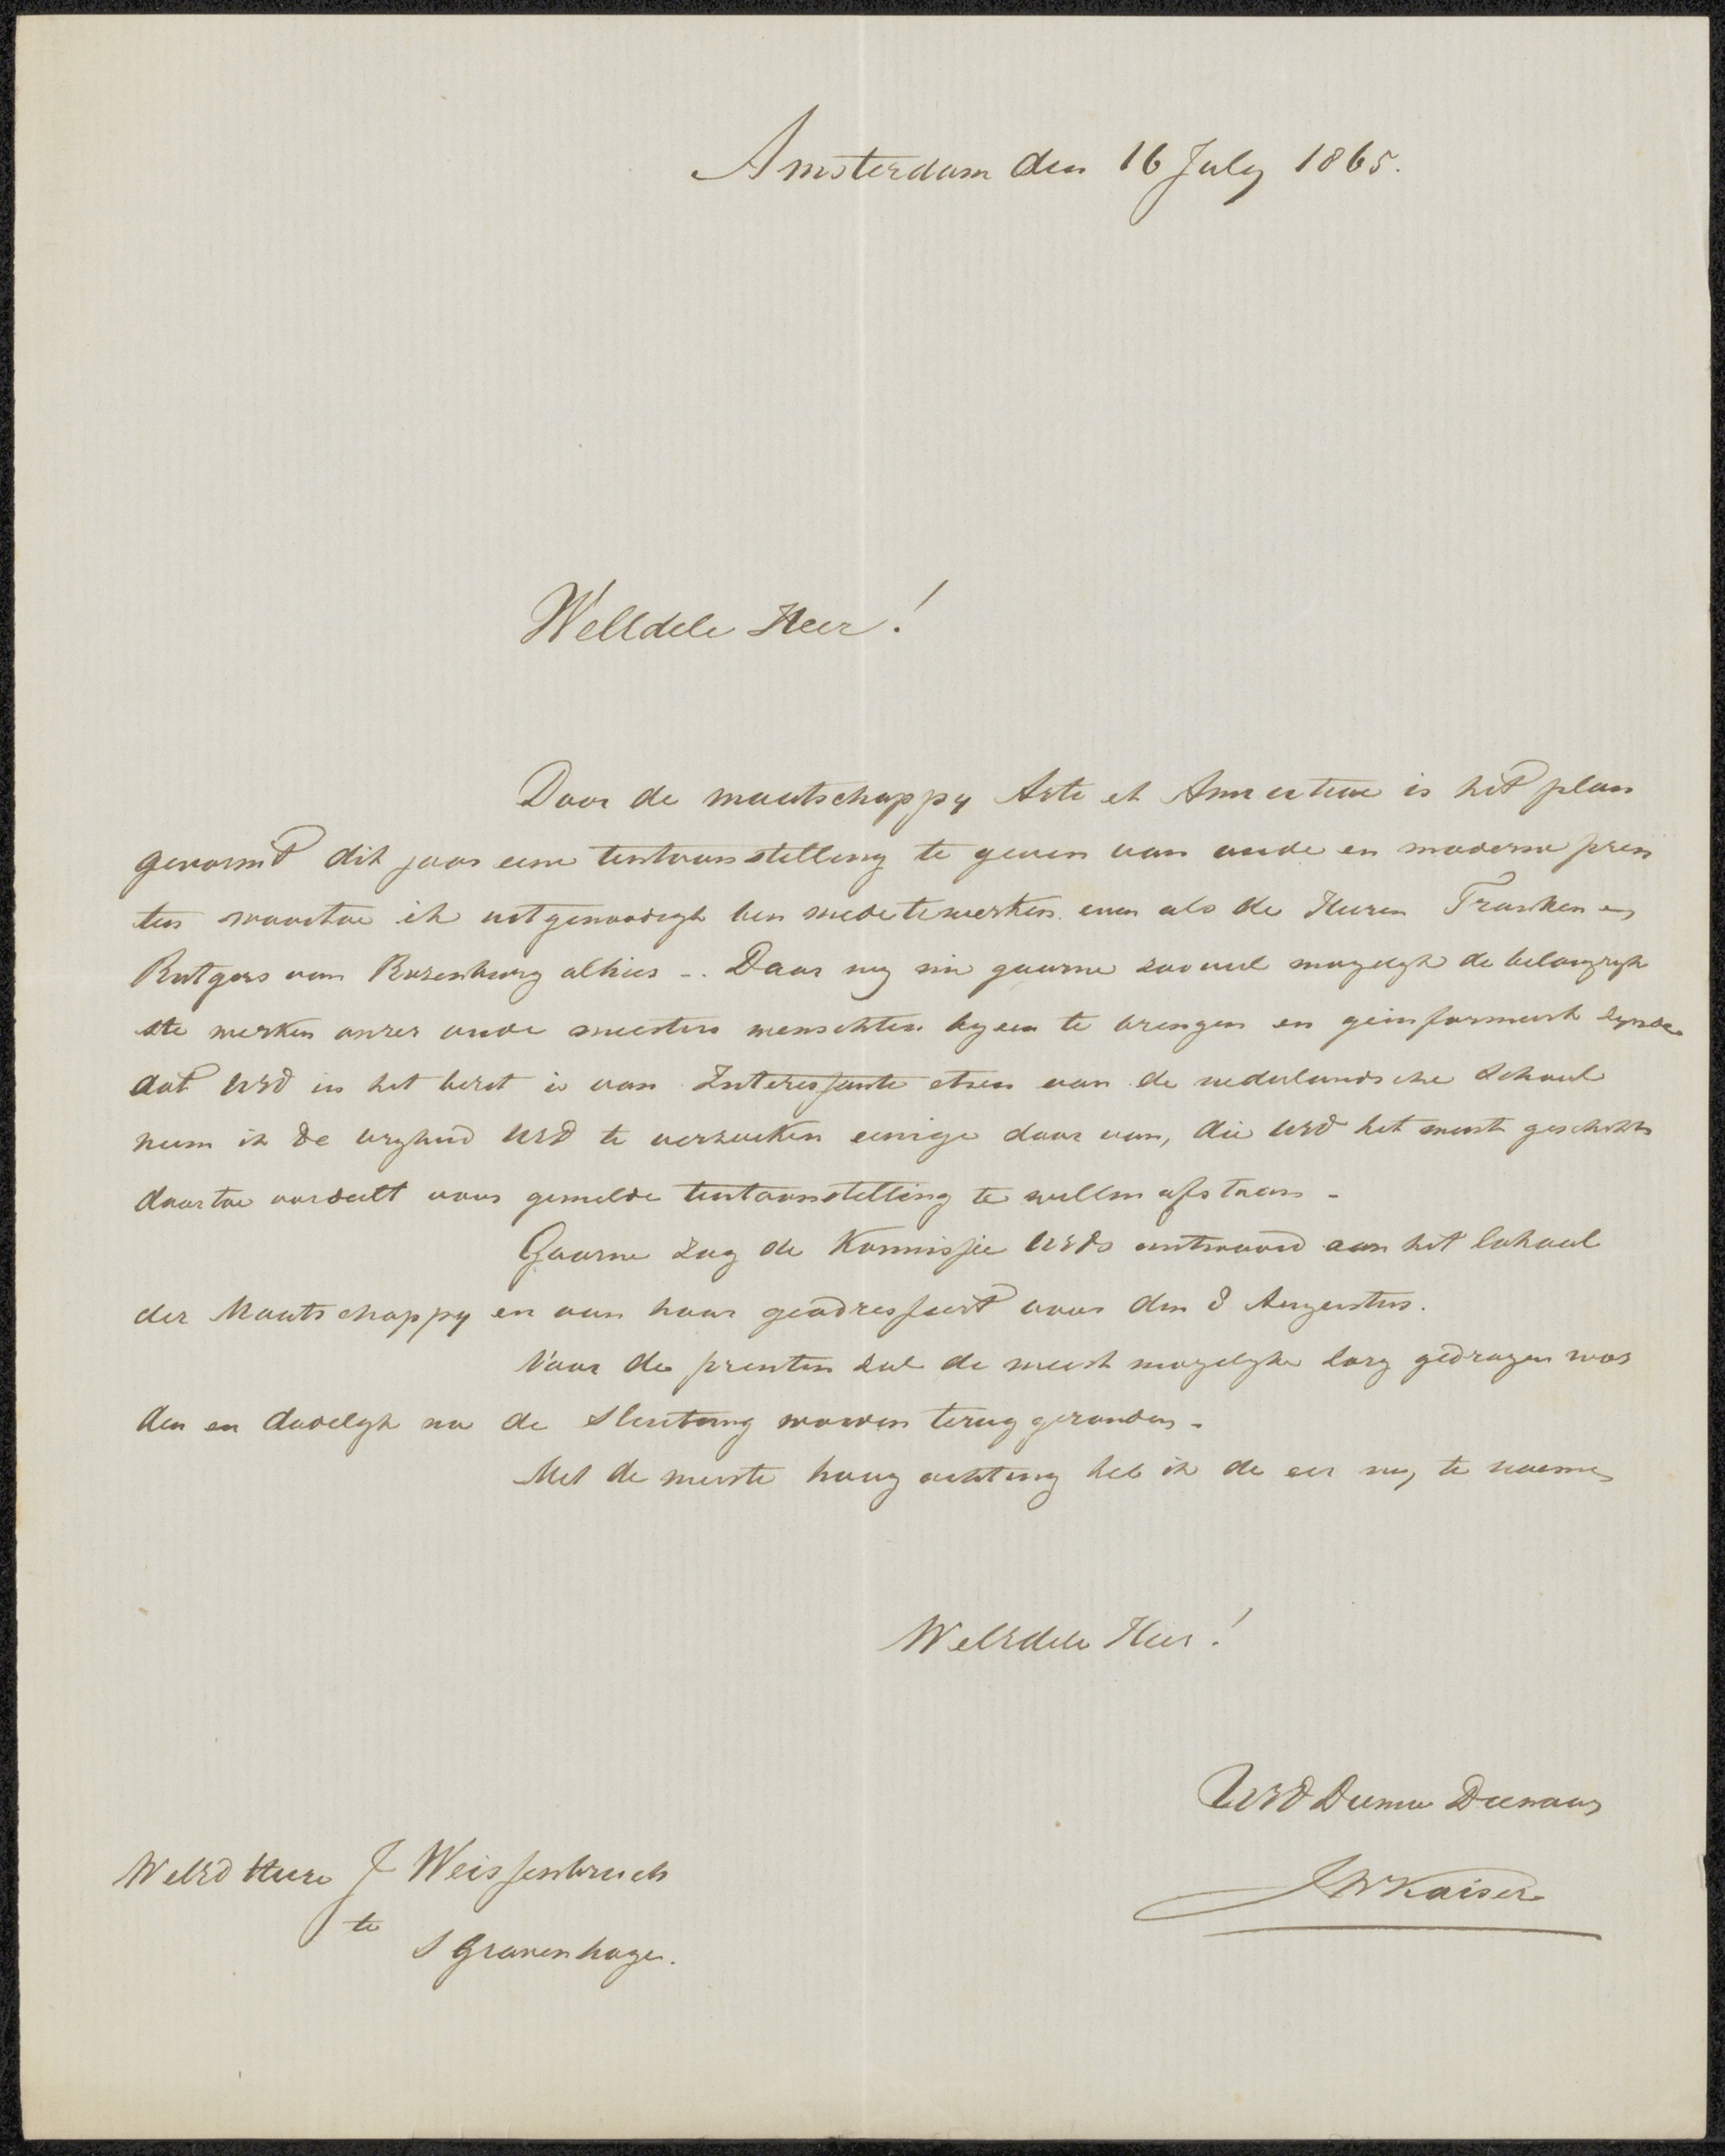 Amsterdam den 16 July 1865.
WelEdele Heer!
Door de maatschappy Arti et Amicitiae is het plan
gevormd dit jaar eene tentoonstelling te geven van oude en moderne pren
ten waartoe ik uitgenoodigd ben mede te werken even als de Heeren Franken en
Rutgers van Rozenburg alhier -. Daar wij nu gaarne zooveel mogelijk de belangrijk
ste werken onzer oude meesters wenschten byeen te brengen en geinformeerd zynde
dat UEd in het bezit is van Interessante etsen van de nederlandsche School
neem ik de vryheid UEd te verzoeken eenige daar van, die UEd het meest geschikt
daartoe oordeelt voor gemelde tentoonstelling te willen afstaan -
Gaarne zag de Kommissie UEds antwoord aan het lokaal
der Maatschappy en aan haar geadresseerd voor den 8 Augustus.
Voor de prenten zal de meest mogelyke zorg gedragen wor
den en dadelyk na de sluiting worden terug gezonden -
Met de meeste hoog achting heb ik de eer my te noemen
WelEdele Heer!
UEd Dienw Dienaar
JWKaiser
WelEd Heere J Weissenbruch
te
S Gravenhage.